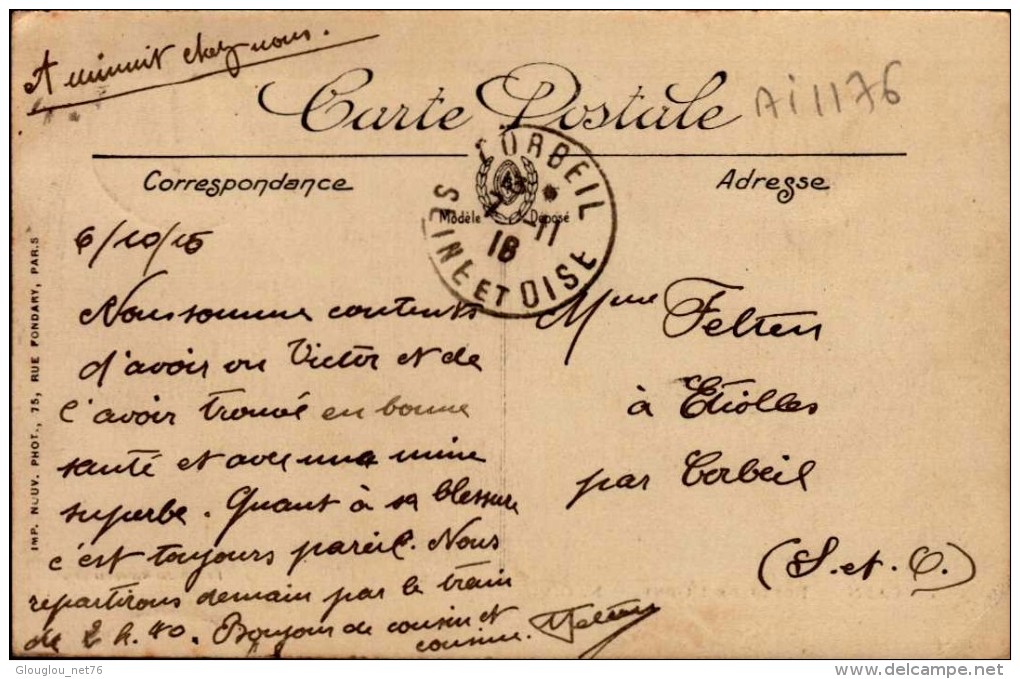 A minuit chez nous.
Carte Postale
Ai 1176
Correspondance
Adresse
Modèle Déposé
CORBEIL
11
18
SEINE ET OISE
6/10/15
Nous somme contents
d'avoir vu Victor et de
l'avoir trouvé en bonne
santé et avec une mine
superbe. Quant à sa blessure
c'est toujours pareil. Nous
repartirons demain par le train
de 2 h. 40. Bonjour de cousin et
cousine. Felten
Mme Felten
à Etiolles
par Corbeil
(S. et. O.)
IMP. NOUV. PHOT., 75, RUE FONDARY, PARIS
Glouglou_net76
delcampe.net